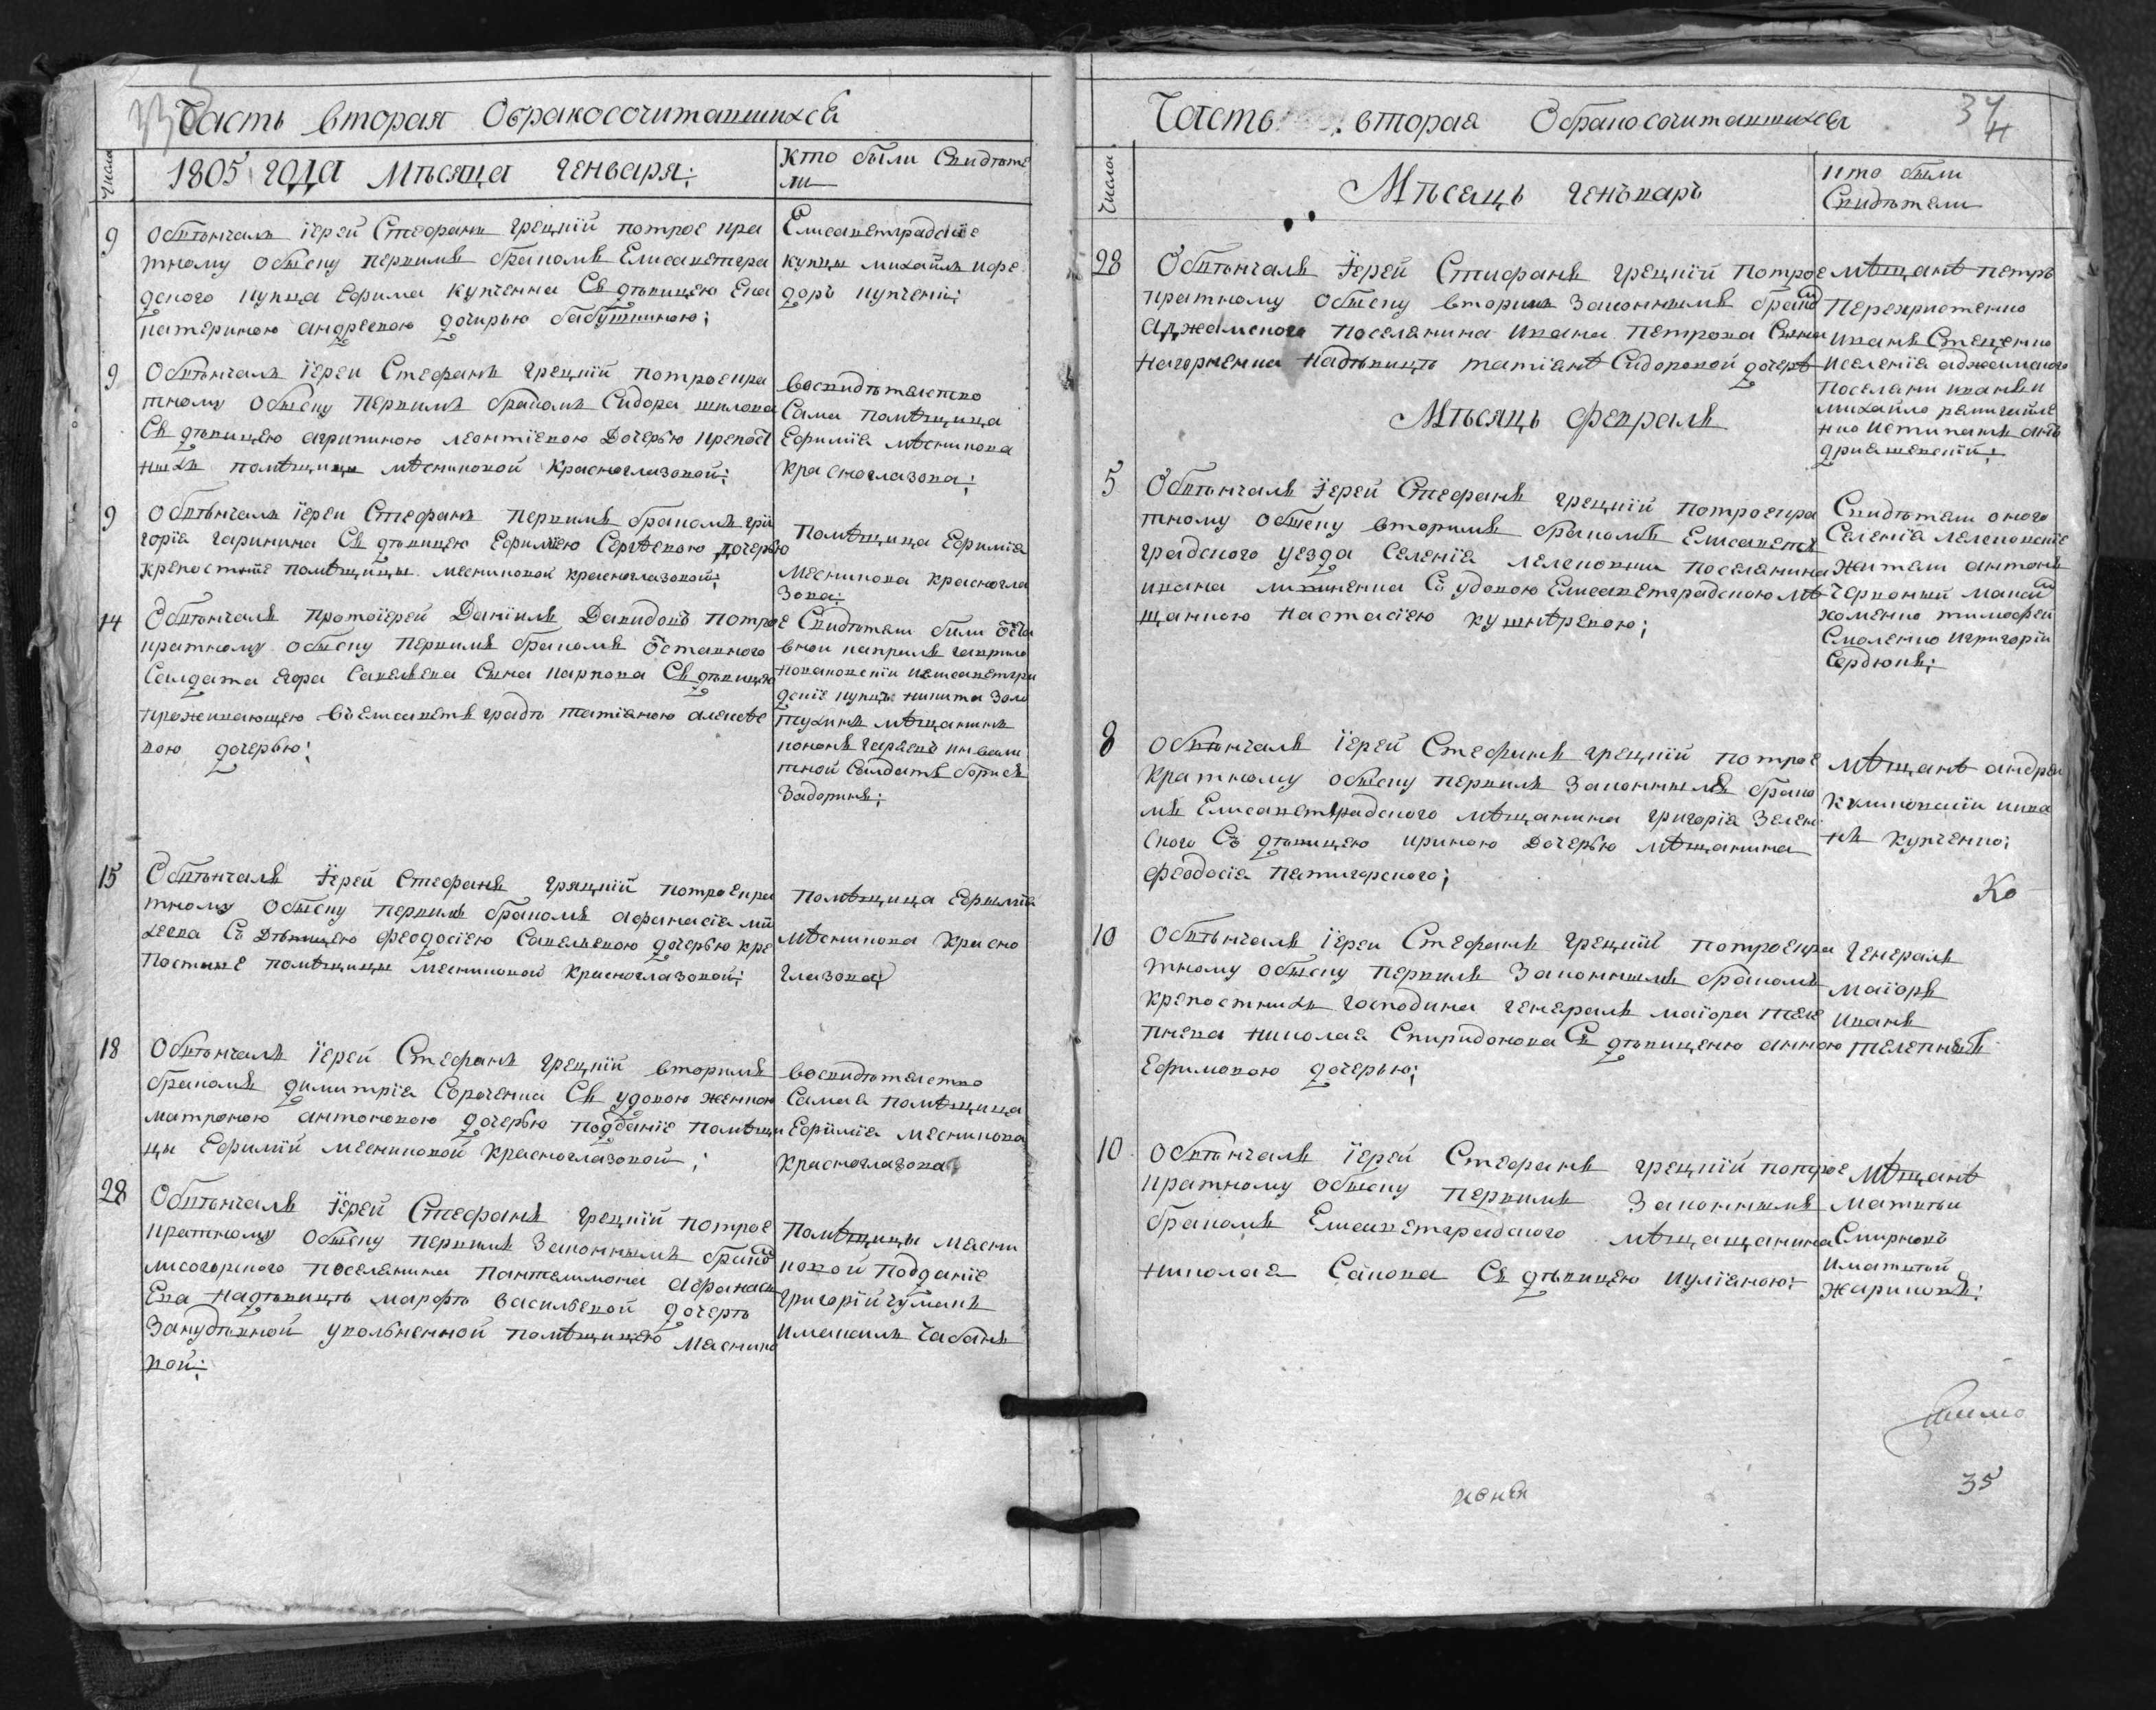 Часть вторая О бракосочитавшихся
Числа
1805 года Мѣсяца Генваря;
кто были Свидѣте
ли
9
Обвѣнчалъ іерей Стефанъ Грецкій потрое кра
тному обыску первымъ бракомъ Елисаветгра
дского купца Ефима Купченка Съ дѣвицею Ека
териною андреевою дочирью бабушкиною;
Елисаветградскіе
купцы михайла ифе
доръ купченки;
9
Обвѣнчалъ іереи Стефанъ Грецкій потроекра
тному обыску первимъ бракомъ Сидора шилова
Съ дѣвицею агрипиною леонтіевою дочерью крепост
ныхъ помѣщицы мѣсниковой Красноглазовой;
восвидѣтелство
Сама помѣщица
Ефимія мѣсникова
красноглазова;
9
Обвѣнчалъ іереи Стефанъ первимъ бракомъ гри
горія гаркина Съ дѣвицею Ефиміею Сергѣевою дочерью
крепостные помѣщицы месниковой красноглазовой;
Помѣщица Ефимія
Месникова красногла
зова;
14
Обвѣнчалъ протоіерей Даніилъ Давидовъ потрое
кратному обыску первимъ бракомъ отставного
Салдата Егора Савельева Сына карпова Съ дѣвицею
проживающею въ елисаветъ градѣ татіаною алексѣе
вою дочерью;
Свидѣтели били отста
вной капралъ гаврило
новаковскій иелисаветгра
дскіе купцы никита Золо
тухинъ мѣщанинъ
кононъ инвали
тной Салдатъ борисъ
Задоринъ;
15
Обвѣнчалъ іерей Стефанъ Гряцкій потроекра
тному обыску первимъ бракомъ афанасія ми
хеева Съ дѣвицею феодосіею Савельевою дочерью кре
постные помѣщицы месниковой красноглазовой;
помѣщица Ефимія
мѣсникова красно
глазова;
18
Обвѣнчалъ іерей Стефанъ Грецкій вторимъ
бракомъ димитрія Сороченка Съ удовою женкою
матроною антоновою дочерью подданіе помѣщи
цы Ефиміи месниковой красноглазовой;
восвидѣтелство
Самая помѣщица
Ефимія месникова
красноглазова;
28
Обвѣнчалъ іерей Стефанъ Грецкій потрое
кратному обыску первимъ Законнымъ браком
лисогорского поселянина пантелимона афанась
ева надѣвицѣ марфѣ васильевой дочерѣ
уволненной помѣщицею месник
вой;
помѣщицы месни
ковой подданіе
григорій чумакъ
имаксимъ Чабанъ
Часть вторая О бракосочитавшихся
34
Числа
Мѣсяцъ Генваръ
кто были
Свидѣтели
28
Обвѣнчалъ іерей Стифанъ Грецкій потрое
кратному обыску вторимъ Законнымъ браком
аджамского поселянина ивана петрова Сына
нагорненка надѣвицѣ татіанѣ Сидоровой дочерѣ
мѣщанѣ петръ
Перехристенко
иванъ Стеценко
иселенія аджамского
поселани иванъ и
михайло
андр
Мѣсяцъ февраль
5
Обвѣнчалъ іерей Стефанъ грецкій потроекра
тному обыску вторимъ бракомъ Елисаветъ
градского уезда Селенія лелековки поселянина
ивана Съ удовою Елисаветградскою мѣ
щанкою настасіею кушнѣревою;
Свидѣтели оного
Селенія лелековскіе
жители антонъ
Червоный
хоменко тимофей
Смоленко игригорій
Сердюкъ;
8
Обвѣнчалъ іерей Стефинъ грецкій потрое
кратному обыску первимъ Законнымъ брако
мъ Елисаветградского мѣщанина григорія Зелен
ского Съ дѣвицею ириною дочерью мѣщанина
феодосія пятигорского;
мѣщанѣ андрей
климовскій иива
нъ купченко;
Ко
10
Обвѣнчалъ іереи Стефанъ Грецкій потроекра
тному обыску первимъ Законнымъ бракомъ
крепостныхъ господина генералъ маіора теле
пнева николая Спиридонова Съ дѣвицею анною
Ефимовою дочерью;
Генералъ
маіоръ
Иванъ
телепневъ
10
Обвѣнчалъ іерей Стефанъ грецкій потрое
кратному обыску первимъ Законнымъ
бракомъ Елисаветградского мѣщащанина
николая Савова Съ дѣвицею иуліаною;
мѣщанѣ
матвѣи
Смирновъ
иматвѣй
жариковъ;
35